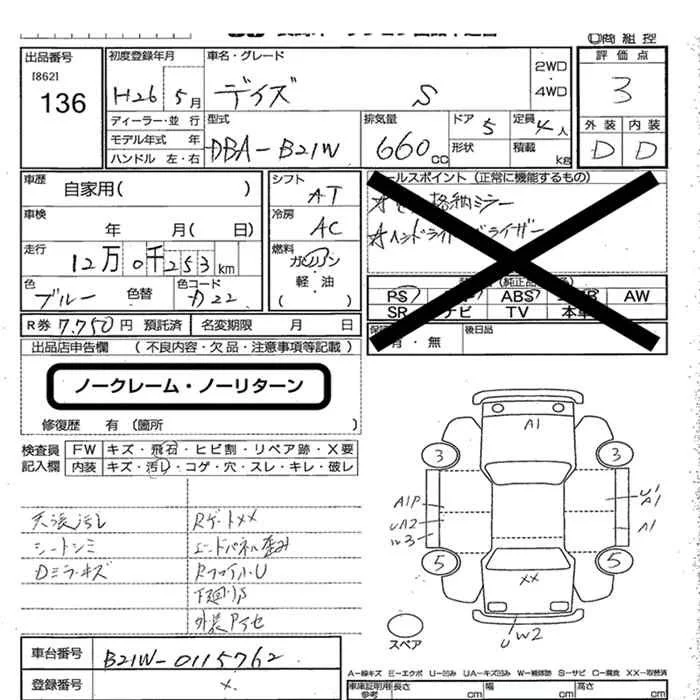 商組控
出品番号
[862]
136
初度登録年月
H26 5月
ディーラー・並行
モデル年式 年
ハンドル 左・右
車名・グレード
デイズ S
2WD
・
4WD
型式
DBA-B21W
排気量
660cc
ドア 5
形状
定員 4人
積載 kg
評価点
3
外装 内装
D D
車歴 自家用( )
車検 年 月( 日)
走行 12万0千253km
色 ブルー 色替
色コード
R券 7,750円 預託済 名変期限 月 日
シフト AT
冷房 AC
燃料 ガソリン
軽・油
( )
ールスポイント (正常に機能するもの)
格納ミラー
PS ABS AW
SR ナビ TV 本革
有・無
後日品
出品店申告欄 (不良内容・欠品・注意事項等記載)
ノークレーム・ノーリターン
修復歴 有 (箇所 )
検査員
記入欄
FW キズ・飛石・ヒビ割・リペア跡・X要
内装 キズ・汚レ・コゲ・穴・スレ・キレ・破レ
天張汚レ RゲートXX
シートシミ エンドパネル歪み
Dミラーキズ RフロアU
下廻りS
A1
3 3
A1P U1
A1
UA2
A1
5 5
XX
UW2
スペア
車台番号 B21W-0115762
登録番号 X
A-線キズ E-エクボ U-凹ミ UA-キズ凹ミ W-補修跡 S-サビ C-腐食 XX-取替済
車庫証明用
参考
長さ cm 幅 cm 高さ cm